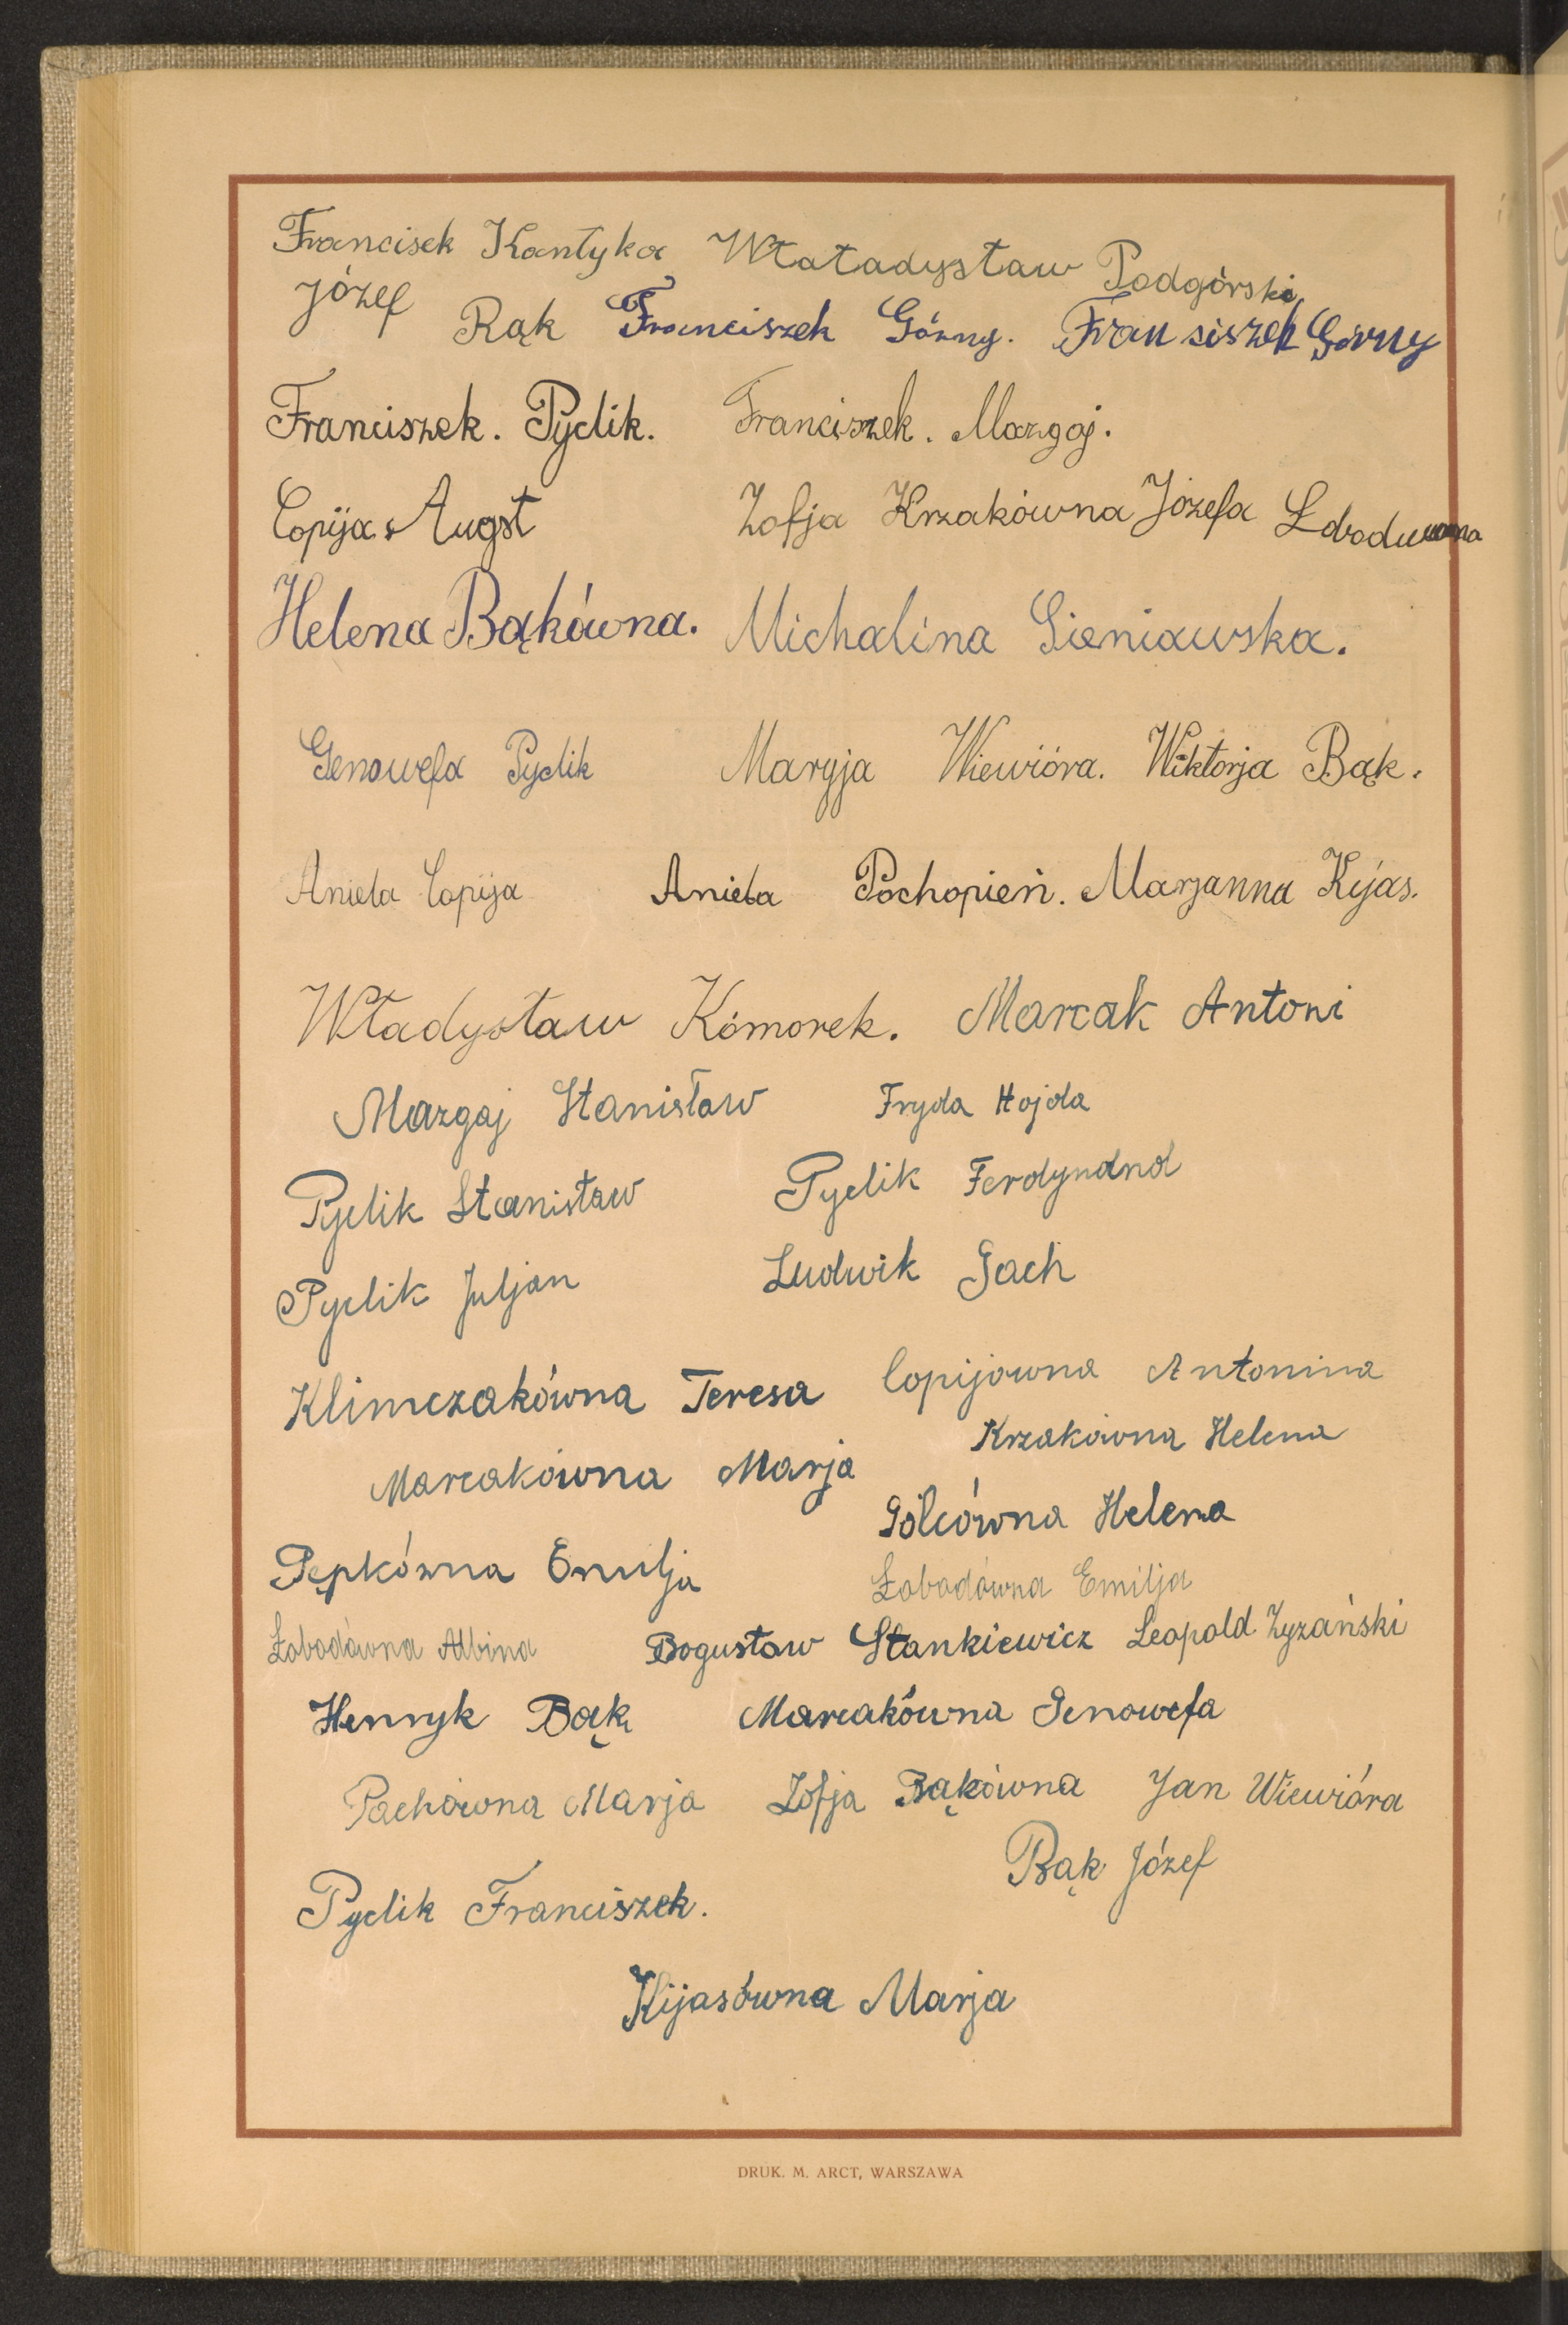 Francisek Kantyka Wtatadystaw Podgórski
Józef Rąk Franciszek Górny. Fransiszek Górny
Franciszek. Pyclik. Franciszek. Mazgaj.
Copija Augst Zofja Krzakówna Józefa
Helena Bąkówna. Michalina Sieniawska.
Genowefa Pyclik Maryja Wiewióra. Wiktorja Bąk.
Aniela Copija Aniela Pochopień. Marjanna Kijas.
Władysław Kómorek. Marcak Antoni
Mazgaj Stanisław Fryda Hojda
Pyclik Stanisław Pyclik Ferdynand
Pyclik Juljan Ludwik Gach
Klimczakówna Teresa Copijowna Antonina
Marcakówna Marja Krzakówna Helena
Pępkówna Emilja Golcówna Helena
Łobodówna Emilja
Łobodówna Albina Bogusław Stankiewicz Leopold Zyzański
Henryk Bąk Marcakówna Genowefa
Pachówna Marja Zofja Bąkówna Jan Wiewióra
Pyclik Franciszek. Bąk Józef
Kijasówna Marja
DRUK. M. ARCT, WARSZAWA